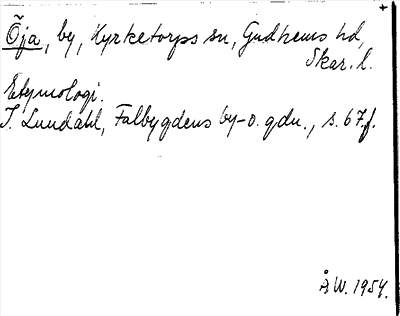 +
Öja, by, Kyrketorps sn, Gudhems hd,
Skar. l.
Etymologi.
I. Lundahl, Falbygdens by-o. gdn., s. 67 f.
Å W. 1954.